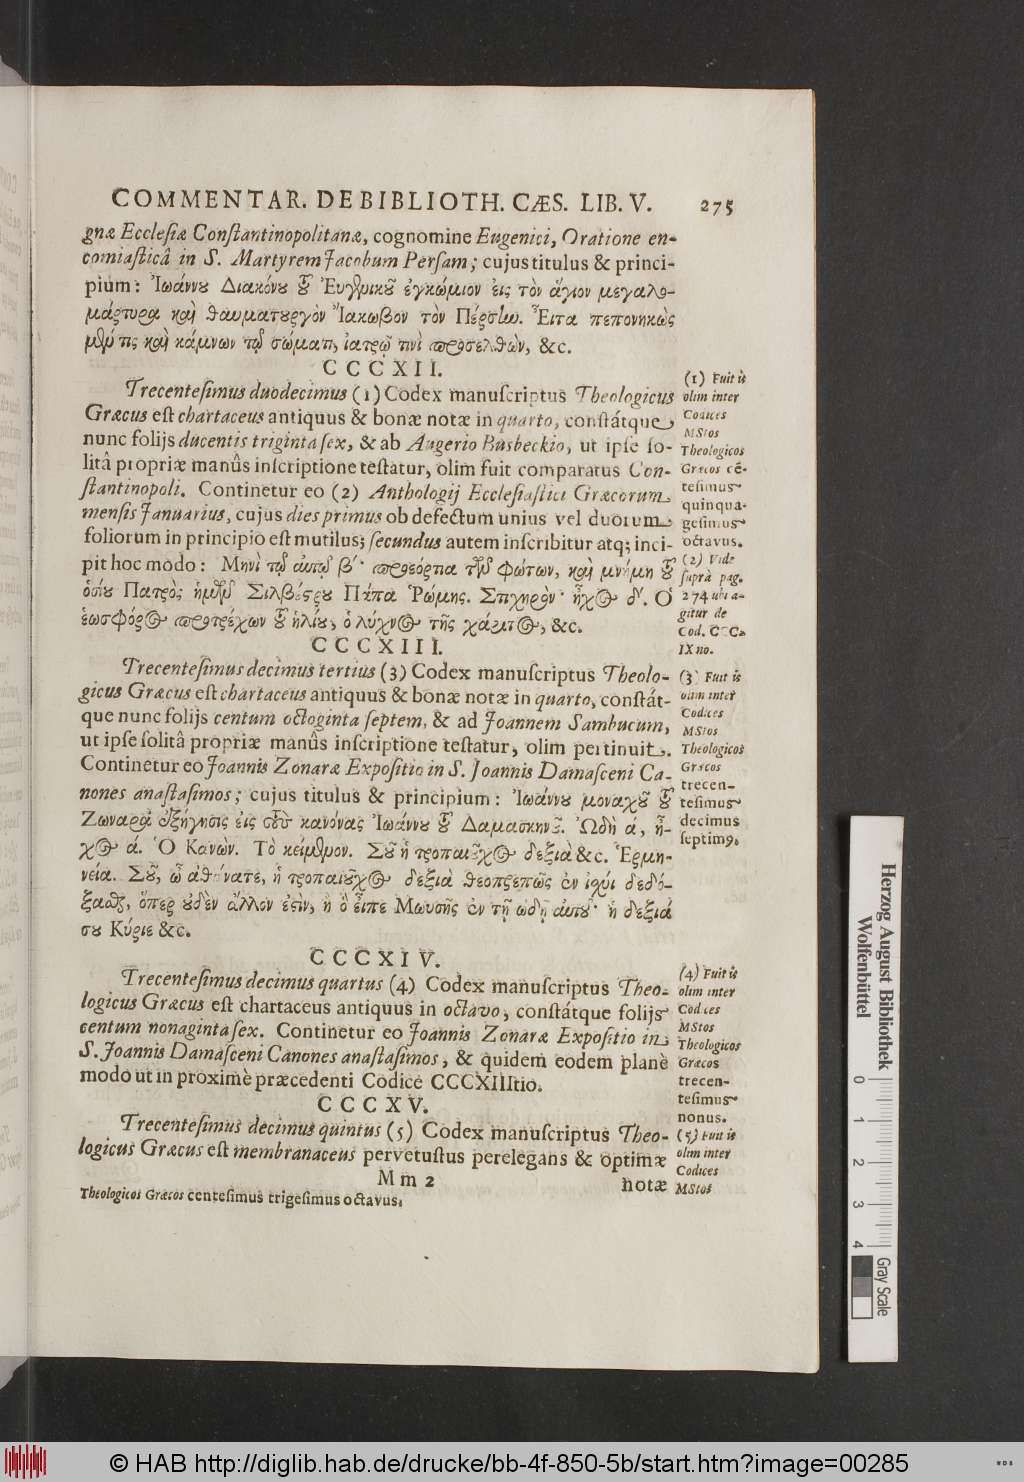 COMMENTAR. DE BIBLIOTH. CÆS. LIB. V. 275
gnæ Ecclesiæ Constantinopolitanæ, cognomine Eugenici, Oratione en-
comiasticâ in S. Martyrem Jacobum Persam; cujus titulus & princi-
pium: Ἰωάννου Διακόνου τοῦ Ἐυγενικοῦ ἐγκώμιον ἐις τὸν ἅγιον μεγαλο-
μάρτυρα καὶ θαυματουργὸν Ἰακωβον τὸν Πέρσlω. Ἔιτα πεπονηκὼς
μέν τις καὶ κάμνων τῷ σώματι, ἰατρῷ τινὶ προσελθὼν, &c.
CCCXII.
Trecentesimus duodecimus (1) Codex manuscriptus Theologicus
Græcus est chartaceus antiquus & bonæ notæ in quarto, constátque
nunc folijs ducentis triginta sex, & ab Augerio Busbeckio, ut ipse so-
litâ propriæ manûs inscriptione testatur, olim fuit comparatus Con-
stantinopoli. Continetur eo (2) Anthologij Ecclesiastici Græcorum
mensis Januarius, cujus dies primus ob defectum unius vel duorum
foliorum in principio est mutilus; secundus autem inscribitur atq; inci-
pit hoc modo: Μηνὶ τῷ ἀυτῷ β΄· προεόρτια τῶν φώτων, καὶ μνήμη τοῦ
ὁσίου Πατρὸς ἡμῶν Σιλβέστρου Πάπα Ῥώμης. Στιχηρὸν· ἦχος δʹ. Ὁ
ἑωσφόρος προτρέχων τοῦ ἡλίου, ὁ λύχνος τῆς χάριτος, &c.
CCCXIII.
Trecentesimus decimus tertius (3) Codex manuscriptus Theolo-
gicus Græcus est chartaceus antiquus & bonæ notæ in quarto, constát-
que nunc folijs centum octoginta septem, & ad Joannem Sambucum,
ut ipse solitâ propriæ manûs inscriptione testatur, olim pertinuit.
Continetur eo Joannis Zonaræ Expositio in S. Joannis Damasceni Ca-
nones anastasimos; cujus titulus & principium: Ἰωάννου μοναχοῦ τοῦ
Ζωναρᾶ ἐξήγησις ἐις τοὺς κανόνας Ἰωάννου τοῦ Δαμασκηνοῦ. Ὠδὴ ά, ἦ-
χος ά. Ὁ Κανὼν. Τὸ κείμενον. Σοῦ ἡ τροπαιοῦχος δεξιὰ &c. Ἑρμη-
νεία. Σοῦ, ὦ ἀθάνατε, ἡ τροπαιοῦχος δεξιὰ θεοπρεπῶς ἐν ἰχύι δεδό-
ξασαι, ὅπερ ουδὲν ἄλλον ἐςὶν, ἢ ὃ ἔιπε Μωυσῆς ἐν τῇ ωδῇ ἀυτοῦ· ἡ δεξιά
σου Κύριε &c.
CCCXIV.
Trecentesimus decimus quartus (4) Codex manuscriptus Theo-
logicus Græcus est chartaceus antiquus in octavo, constátque folijs
centum nonaginta sex. Continetur eo Joannis Zonaræ Expositio in
S. Joannis Damasceni Canones anastasimos, & quidem eodem planè
modo ut in proximè præcedenti Codice CCCXIIItio.
CCCXV.
Trecentesimus decimus quintus (5) Codex manuscriptus Theo-
logicus Græcus est membranaceus pervetustus perelegans & optimæ
Mm 2 notæ
(1) Fuit is
olim inter
Codices
MStos
Theologicos
Græcos cē-
tesimus
quinqua-
gesimus
octavus.
(2) Vide
suprà pag.
274 ubi a-
gitur de
Cod. CCC-
IX no.
(3) Fuit is
olim inter
Codices
MStos
Theologicos
Græcos
trecen-
tesimus
decimus
septimꝰ.
(4) Fuit is
olim inter
Codices
MStos
Theologicos
Græcos
trecen-
tesimus
nonus.
(5) Fuit is
olim inter
Codices
MStos
Theologicos Græcos centesimus trigesimus octavus.
Herzog August Bibliothek
Wolfenbüttel
0 1 2 3 4
Gray Scale
© HAB http://diglib.hab.de/drucke/bb-4f-850-5b/start.htm?image=00285